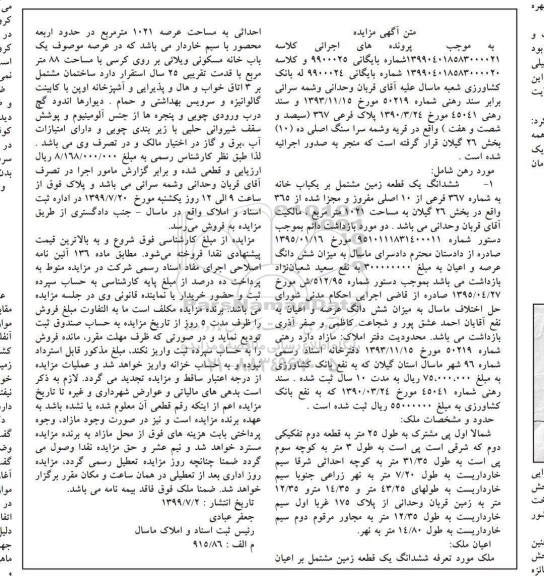 متن آگهی مزایده
به موجب پرونده های اجرائی کلاسه
۱۳۹۹۰۴۰۱۸۵۸۳۰۰۰۰۲۱شماره بایگانی ۹۹۰۰۰۲۵ و کلاسه
۱۳۹۹۰۴۰۱۸۵۸۳۰۰۰۰۲۰ شماره بایگانی ۹۹۰۰۰۲۴ له بانک
کشاورزی شعبه ماسال علیه آقای قربان وحدانی وشمه سرائی
برابر سند رهنی شماره ۵۰۲۱۹ مورخ ۱۳۹۳/۱۱/۱۵ و سند
رهنی ۴۵۰۴۱ مورخ ۱۳۹۰/۳/۲۴ پلاک فرعی ۳۶۷ (سیصد و
شصت و هفت ) واقع در قریه وشمه سرا سنگ اصلی ده (۱۰)
بخش ۲۶ گیلان قرار گرفته است که منجر به صدور اجرائیه
شده است .
مورد رهن شامل:
۱- ششدانگ یک قطعه زمین مشتمل بر یکباب خانه
به شماره ۳۶۷ فرعی از ۱۰ اصلی مفروز و مجزا شده از ۳۶۵
واقع در بخش ۲۶ گیلان به مساحت ۱۰۲۱ متر مربع . مالکیت
آقای قربان وحدانی می باشد . دو مورد بازداشت دائم بموجب
دستور شماره ۹۵۱۰۱۱۱۸۳۱۴۰۰۰۱۱ مورخ ۱۳۹۵/۰۱/۱۶
صادره از دادستان محترم دادسرای ماسال به میزان شش دانگ
عرصه و اعیان به مبلغ ۳۰۰۰۰۰۰۰۰ به نفع سعید شعبان‌نژاد
بازداشت می باشد بموجب دستور شماره ۵۱۲/۹۵/ش مورخ
۱۳۹۵/۰۴/۲۷ صادره از قاضی اجرایی احکام مدنی شورای
حل اختلاف ماسال به میزان شش دانگ عرصه و اعیان به
نفع آقایان احمد عشق پور و شجاعت کاظمی و صفر آذری
بازداشت می باشد. محدودیت دفتر املاک: مازاد دارد رهنی
شماره ۵۰۲۱۹ مورخ ۱۳۹۳/۱۱/۱۵ دفترخانه اسناد رسمی
شماره ۹۶ شهر ماسال استان گیلان که به نفع بانک کشاورزی
به مبلغ ۷۵.۰۰۰.۰۰۰ ریال به مدت ۱۰ سال ثبت شده . سند
رهنی شماره ۴۵۰۴۱ مورخ ۱۳۹۰/۰۳/۲۴ که به نفع بانک
کشاورزی به مبلغ ۵۵۰۰۰۰۰۰ ریال ثبت شده است .
حدود و مشخصات ملک:
شمالا اول پی مشترک به طول ۲۵ متر به قطعه دوم تفکیکی
دوم که شرقی است پی است به طول ۳ متر به کوچه سوم
پی است به طول ۳۱/۳۵ متر به کوچه احداثی شرقا سیم
خارداریست به طول ۷/۲۰ متر به نهر زراعی جنوبا سیم
خارداریست به طولهای ۴۳/۲۵ متر و ۱۴/۳۵ مترو ۱۲/۳۵
متر به زمین قربان وحدانی از پلاک ۱۷۵ غربا اول سیم
خارداریست به طول ۱۲/۳۵ متر به مجاور مرقوم دوم سیم
خارداریست به طول ۱۴/۸۰ متر به نهر.
اعیان ملک:
ملک مورد تعرفه ششدانگ یک قطعه زمین مشتمل بر اعیان
احداثی به مساحت عرصه ۱۰۲۱ مترمربع در حدود اربعه
محصور با سیم خاردار می باشد که در عرصه موصوف یک
باب خانه مسکونی ویلائی بر روی کرسی با مساحت ۸۸ متر
مربع با قدمت تقریبی ۲۵ سال استقرار دارد ساختمان مشتمل
بر ۳ اتاق خواب و هال و پذیرایی و آشپزخانه اوپن با کابینت
گالوانیزه و سرویس بهداشتی و حمام . دیوارها اندود گچ
درب ورودی چوبی و پنجره ها از جنس آلومینیوم و پوشش
سقف شیروانی حلبی با زیر بندی چوبی و دارای امتیازات
آب ،برق و گاز در اختیار مالک و در تصرف وی می باشد .
لذا طبق نظر کارشناس رسمی به مبلغ ۸/۱۶۸/۰۰۰/۰۰۰ ریال
ارزیابی و قطعی شده و برابر گزارش مامور اجرا در تصرف
آقای قربان وحدانی وشمه سرائی می باشد و پلاک فوق از
ساعت ۹ الی ۱۲ روز یکشنبه مورخ ۱۳۹۹/۷/۲۰ در اداره ثبت
اسناد و املاک واقع در ماسال - جنب دادگستری از طریق
مزایده به فروش می‌رسد.
مزایده از مبلغ کارشناسی فوق شروع و به بالاترین قیمت
پیشنهادی نقدا فروخته می‌شود. مطابق ماده ۱۳۶ آئین نامه
اصلاحی اجرای مفاد اسناد رسمی شرکت در مزایده منوط به
پرداخت ده درصد از مبلغ پایه کارشناسی به حساب سپرده
ثبت و حضور خریدار یا نماینده قانونی وی در جلسه مزایده
می باشد. برنده مزایده مکلف است ما به التفاوت مبلغ فروش
را ظرف مدت ۵ روز از تاریخ مزایده به حساب صندوق ثبت
تودیع نماید و در صورتی که ظرف مهلت مقرر، مانده فروش
را به حساب سپرده ثبت واریز نکند، مبلغ مذکور قابل استرداد
نبوده و به حساب خزانه واریز خواهد شد و عملیات مزایده
از درجه اعتبار ساقط و مزایده تجدید می گردد. لازم به ذکر
است بدهی های مالیاتی و عوارض شهرداری و غیره تا تاریخ
مزایده اعم از اینکه رقم قطعی آن معلوم شده یا نشده باشد به
عهده برنده مزایده است و نیز در صورت وجود مازاد، وجوه
پرداختی بابت هزینه های فوق از محل مازاد به برنده مزایده
مسترد خواهد شد و نیم عشر و حق مزایده نقدا وصول می
گردد ضمنا چنانچه روز مزایده تعطیل رسمی گردد، مزایده
روز اداری بعد از تعطیلی در همان ساعت و مکان مقرر برگزار
خواهد شد. ضمنا ملک فوق فاقد بیمه نامه می باشد.
تاریخ انتشار : ۱۳۹۹/۷/۲
جعفر عبادی
رئیس ثبت اسناد و املاک ماسال
م الف : ۹۱۵/۸۶